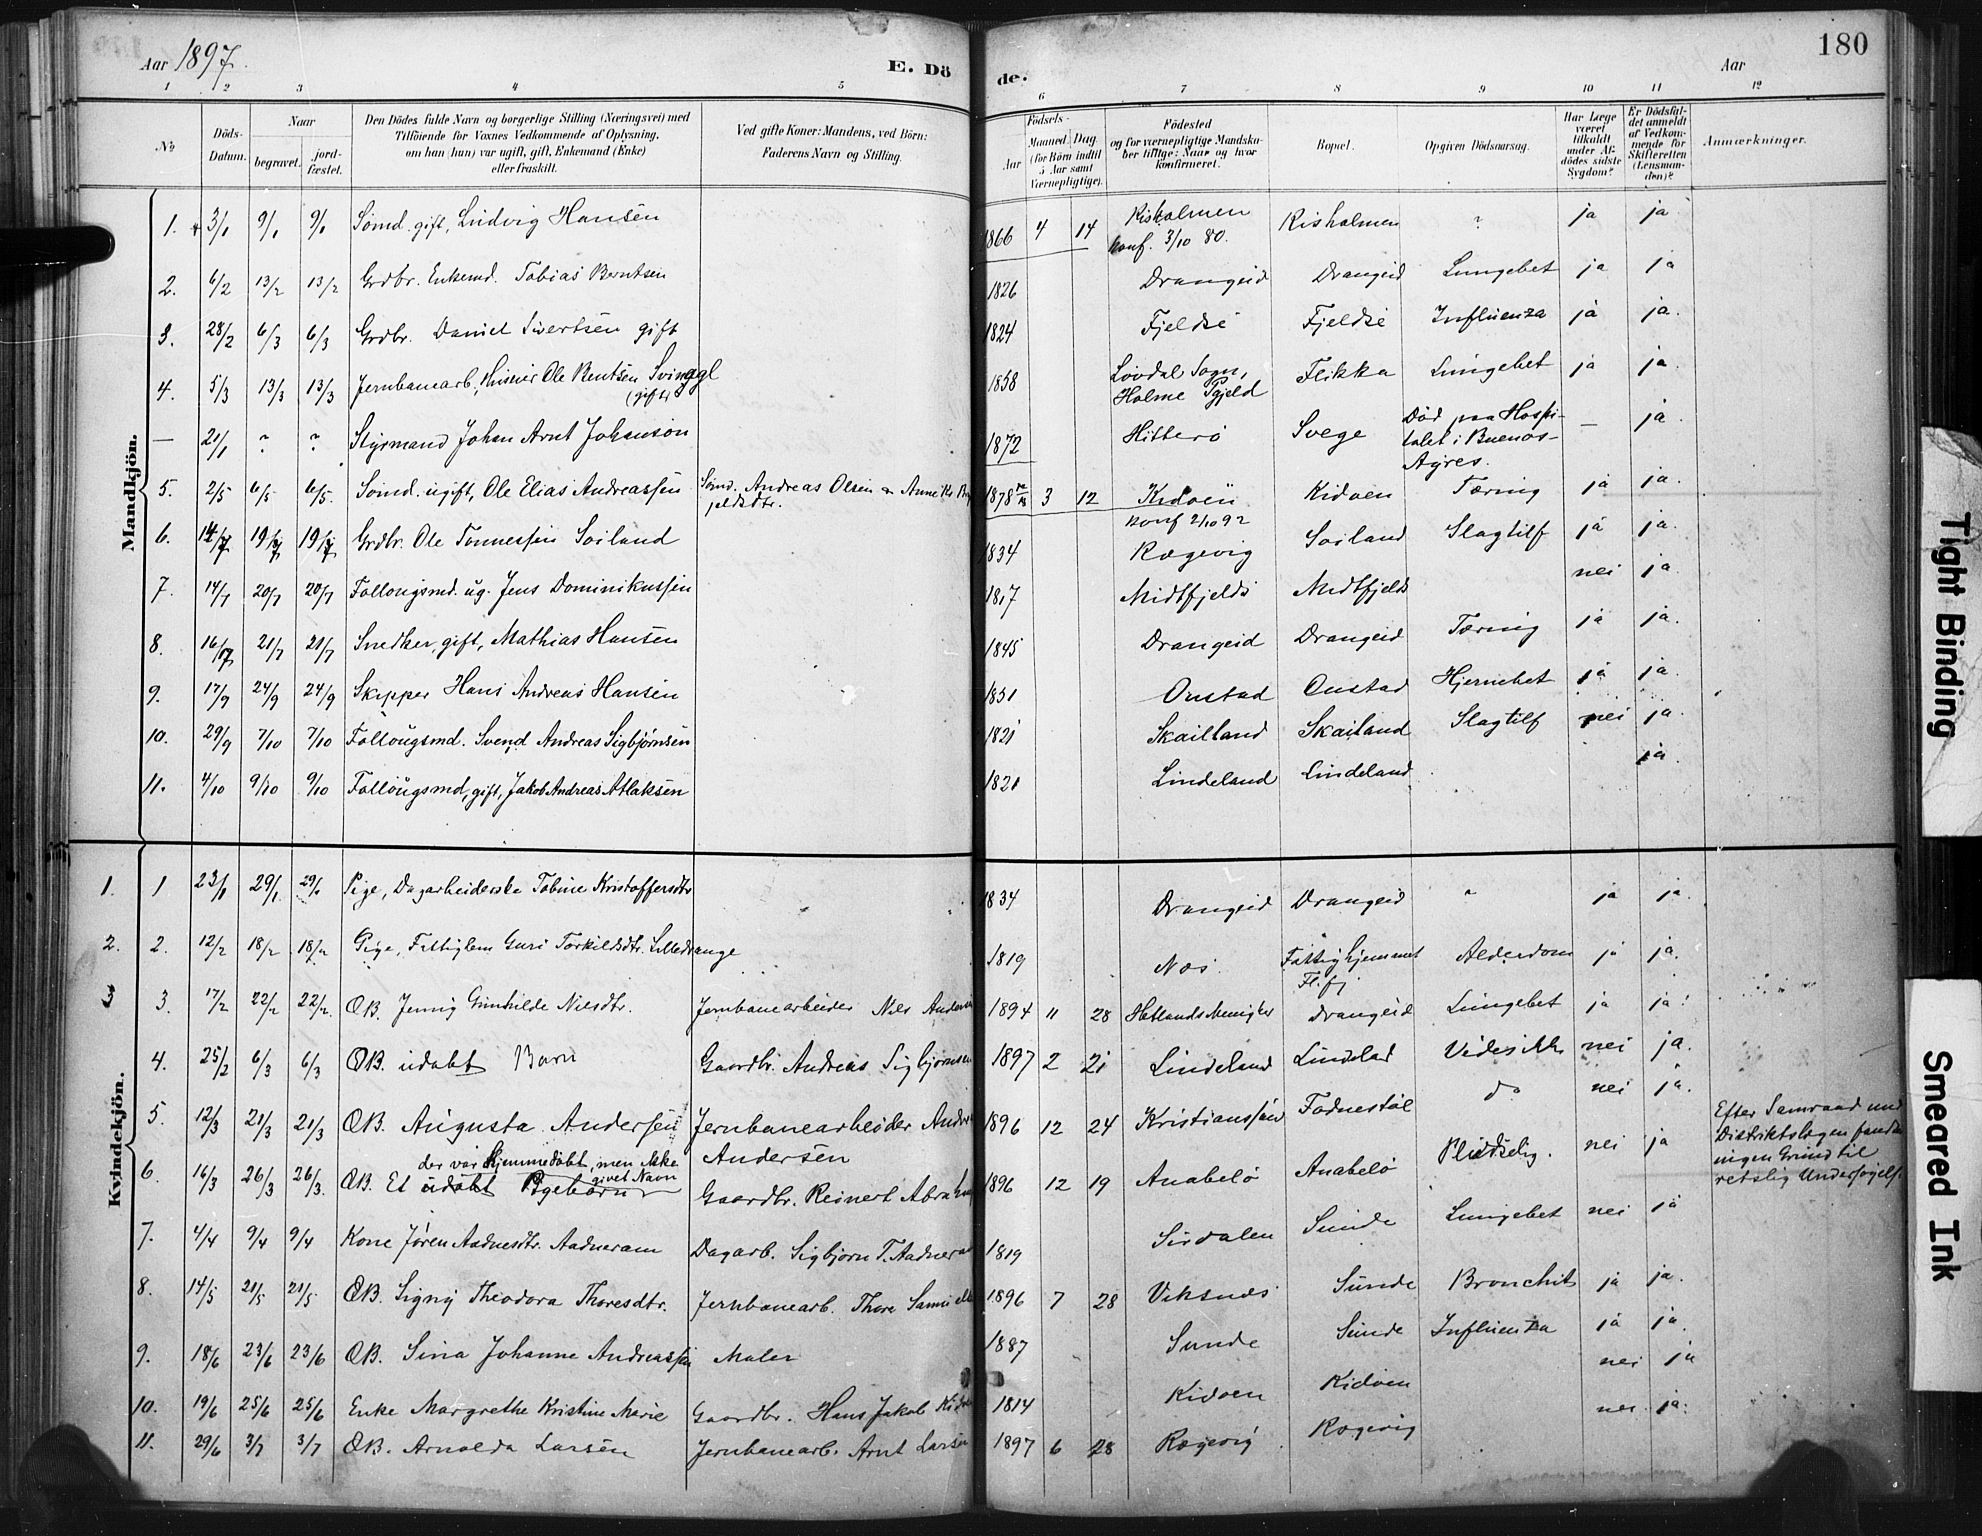 Aar 1897.
E. Dö
de.
Aar
180
1 2 3 4 5 6 7 8 9 10 11 12
No
Döds-
Datum.
Naar
begravet.
jord-
fæstet.
Den Dödes fulde Navn og borgerlige Stilling (Næringsvei) med
Tilföiende for Voxnes Vedkommende af Oplysning,
om han (hun) var ugift, gift, Enkemand (Enke)
eller fraskilt.
Ved gifte Koner: Mandens, ved Börn:
Faderens Navn og Stilling.
Födsels-
Aar
Maaned. Dag.
(for Börn indtil
5 Aar samt
Værnepligtige).
Födested
og for værnepligtige Mandska-
ber tillige: Naar og hvor
konfirmeret.
Bopæl.
Opgiven Dödsaarsag.
Har Læge
været
tilkaldt
under Af-
dödes sidste
Sygdom?
Er Dödsfal-
det anmeldt
af Vedkom-
mende for
Skifteretten
(Lensman-
den)?
Anmærkninger.
Mandkjön.
1. 3/1 9/1 9/1 Sømd. gift, Ludvig Hansen 1866 4 14 Risholmen Risholmen ? ja ja
konf. 3/10 80.
2. 6/2 13/2 13/2 Grdbr. Enkemd. Tobias Berntsen 1826 Drangeid Drangeid Lungebet ja ja
3. 28/2 6/3 6/3 Grdbr. Daniel Sivertsen gift 1824 Fjeldsé Fjeldsé Influenza ja ja.
4. 5/3 13/3 13/3 Jernbanearb, Husmr Ole Bentsen (gift) 1858 Løvdal Sogn, Flikka Lungebet ja ja.
Holme Pgjeld
— 21/1 ? ? Styrmand Johan Arnt Johanson 1872 Hitterø Svege Død paa Hospi- — ja.
talet i Buenos-
Ayres.
5. 2/5 6/5 6/5. Sømd. ugift, Ole Elias Andreassen Sømd. Andreas Olsen 1878 3 12 Kidøen Kidøen Tæring ja ja.
konf 2/10 92
6. 19/7 Grdbr. Ole Tønnessen Soiland 1834 Rægevig Soiland Slagtilf ja ja.
7. 14/7 20/7 20/7 Follougsmd. ug. Jens Dominikussen 1817 Midtfjelds Midtfjelds nei ja.
8. 16/7 21/7 21/7 Snedker, gift, Mathias Hansen 1845 Drangeid Drangeid Tæring ja ja.
9. 17/9 24/9 24/9 Skipper Hans Andreas Hansen 1851 Onstad Onstad Hjernebet ja ja.
10. 29/9 7/10 7/10 Follougsmd. Svend Andreas Sigbjørnsen 1821 Skailand Skailand Slagtilf nei ja.
11. 4/10 9/10 9/10 Follougsmd, gift, Jakob Andreas Atlaksen 1821 Lindeland Lindeland ja.
Kvindekjön.
1. 1 23/1 29/1 29/1 Pige, Dagarbeiderske Tobine Kristoffersdtr 1834 Drangeid Drangeid ? ja ja.
2. 2. 12/2 18/2 18/2 Pige, Fattiglem Guri Torkildsdtr. Lilledrange 1819 Næs Fattighjemmet Alderdom ja ja.
3 3. 17/2 22/2 22/2 ÆB. Jenny Gunhilde Nilsdtr. Jernbanearbeider Nils 1894 11 28 Drangeid Lungebet ja ja
4. 25/2 6/3 6/3 ÆB. udøbt Barn Gaardbr. Andreas Sigbjørnsen 1897 2 21 Lindeland Videsikke nei ja.
5. 12/3 21/3 21/3 ÆB. Augusta Andersen Jernbanearbeider 1896 12 24 Kristianssand Fodnestøl do nei ja.
Andersen
der var hjemmedøbt, men ikke
givet Navn
6. 16/3 26/3 26/3. ÆB. Et udøbt Pigebarn Gaardbr. Reinert 1896 12 19 Anabelø Anabelø Pludselig. nei ja
Efter Samraad med
Distriktslægen
ingen Grund til
retslig Undersøgelse
7. 4/4 9/4 9/4 Kone Jøren Aadnesdtr. Aadneram Dagarb. Sigbjørn T. 1819 Sirdalen Sunde Lungebet nei ja
8. 14/5 21/5 21/5. ÆB. Signy Theodora Thoresdtr. Jernbanearb. Thore 1896 7 28 Viksnæs Sunde Bronchit ja ja.
9. 18/6 23/6 23/6 ÆB. Sina Johanne Andreassen Maler 1887 Sunde Sunde Influenza ja ja.
10. 19/6 25/6 25/6 Enke Margrethe Kristine Marie Gaardbr. Hans Jakob 1814 Kidøen Kidøen nei ja
11. 29/6 3/7 3/7 ÆB. Arnolda Larsen Jernbanearb. Arnt Larsen 1897 6 28 Rægevig Rægevig nei ja.
Tight Binding
Smeared Ink